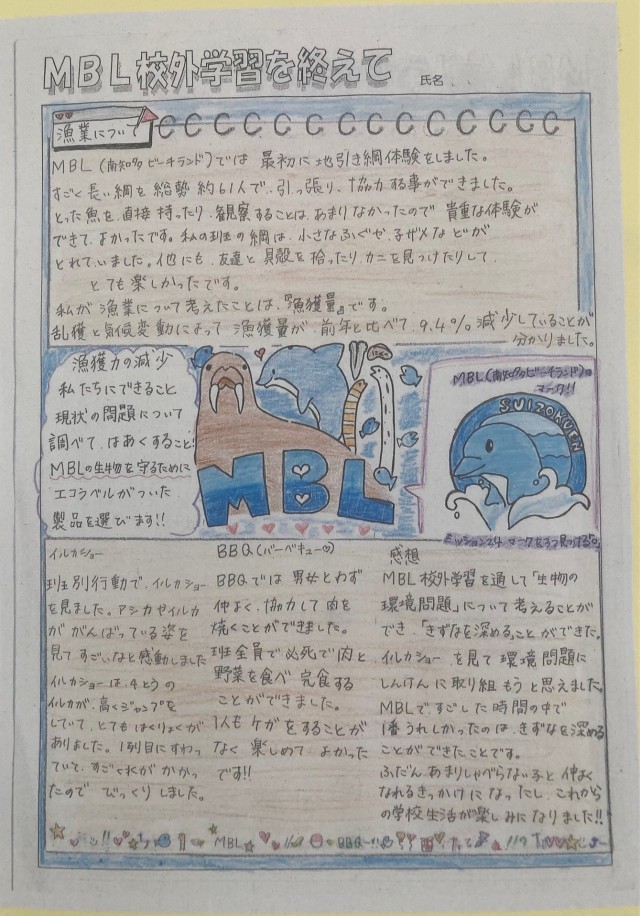 MBL校外学習を終えて
氏名
漁業について
MBL(南知多ビーチランド)では 最初に地引き網体験をしました。
すごく長い網を 総勢 約61人で、引っ張り、協力する事ができました。
とった魚を、直接 持ったり、観察することは、あまりなかったので 貴重な体験が
できて、よかったです。私の班の網は、小さなふぐや、子ザメなどが
とれていました。他にも、友達と 貝殻を 拾ったり、カニを見つけたりして、
とても楽しかったです。
私が 漁業について考えたことは、『漁獲量』です。
乱獲と気候変動によって 漁獲量が 前年と比べて、9.4% 減少していることが
分かりました。
漁獲力の減少
私たちにできること
現状の問題について
調べて、はあくすること!
MBLの生物を守るために
エコラベルがついた
製品を選びます!!
MBL
MBL(南知多ビーチランド)の
マーク!!
SUIZOKUEN
イルカショー
班別行動で、イルカショー
を見ました。アシカやイルカ
が がんばっている姿を
見て すごいなと感動しました
イルカショーは、4とうの
イルカが、高くジャンプを
していて、とてもはくりょくが
ありました。1列目にすわっ
ていて、すごく水がかかっ
たので びっくりしました。
BBQ(バーベキュー)
BBQでは 男女とわず
仲よく、協力して 肉を
焼くことができました。
班全員で必死で肉と
野菜を食べ 完食する
ことができました。
1人もケガをすることが
なく 楽しめて よかった
です!!
感想
MBL校外学習を通して「生物の
環境問題」について考えることが
でき、「きずなを深める」ことができた。
イルカショーを見て環境問題に
しんけんに取り組もうと思えました。
MBLですごした時間の中で
1番うれしかったのは、きずなを深める
ことができたことです。
ふだん、あまりしゃべらない子と仲よく
なれるきっかけになったし、これから
の学校生活が楽しみになりました!!
MBL
BBQ